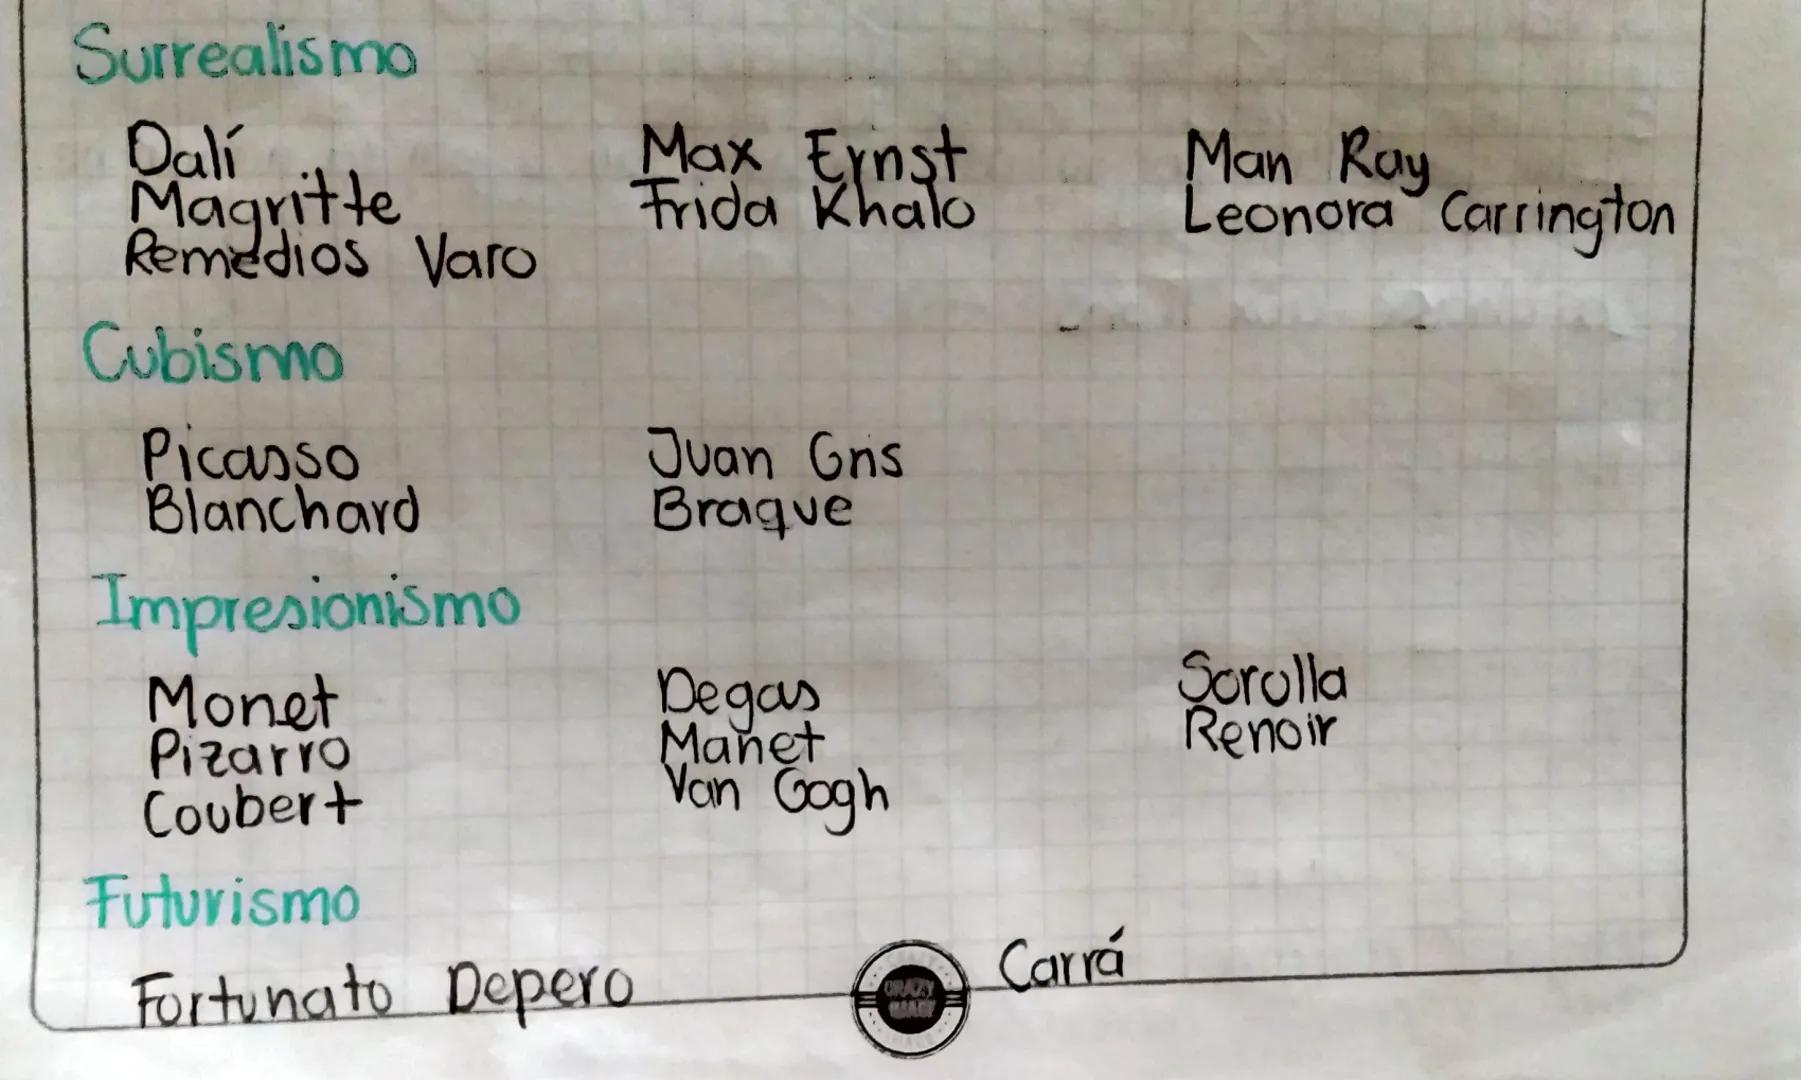 Surrealismo
Dalí Max Ernst Man Ray
Magritte Frida Khalo Leonora Carrington
Remedios Varo
Cubismo
Picasso Juan Gris
Blanchard Braque
Impresionismo
Monet Degas Sorolla
Pizarro Manet Renoir
Coubert Van Gogh
Futurismo
Fortunato Depero Carrá
CRAZY